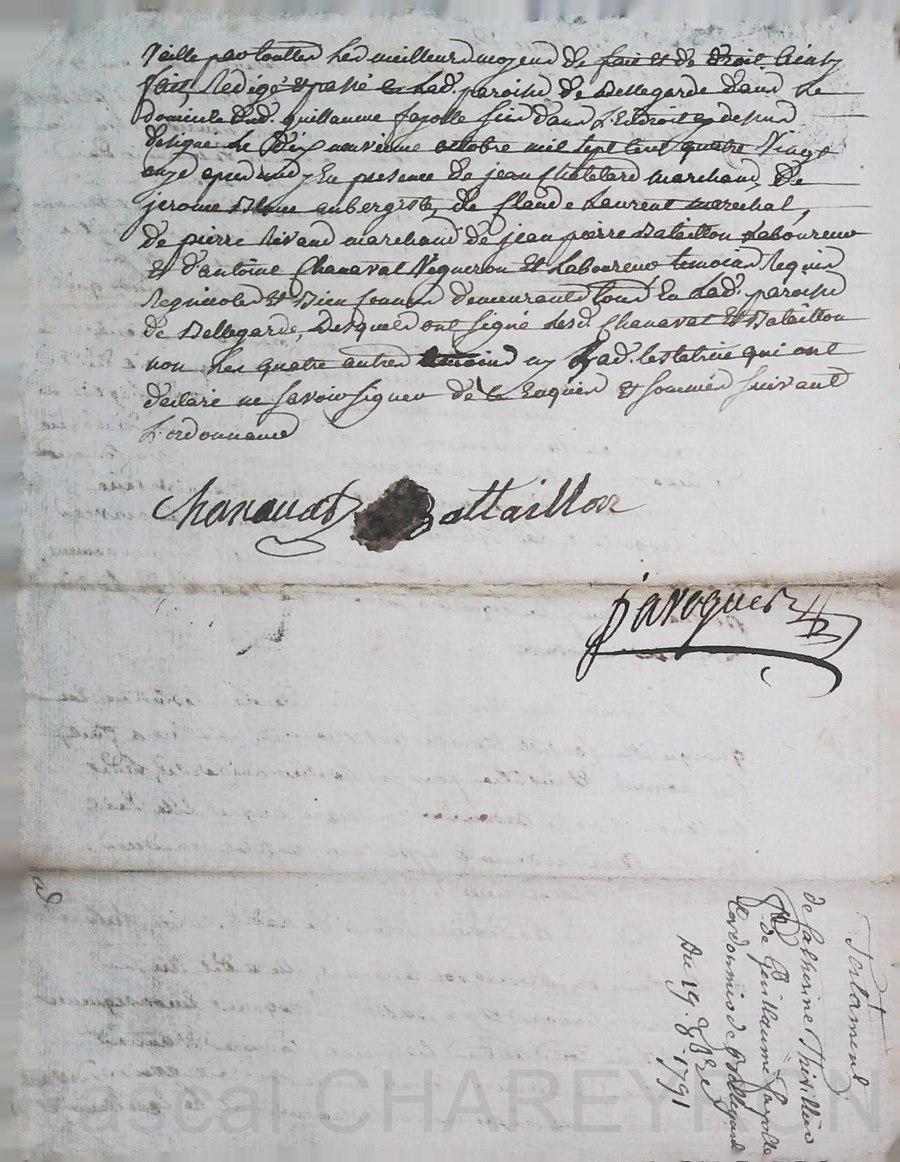 vaille par touttes les meilleurs moyens de fait et de droit. Ainsy
fait, Redigé et passé en Lad. paroisse de Bellegarde dans Le
domicile dud. guillaume fayolle sis dans L'Endroit cy dessus
designé Le dix neuvieme octobre mil sept cent quatre vingt
onze apres midy En presence de jean Chatelard marchand, de
jerome aubergiste, de Claude Laurent marechal,
de pierre Rivaud marchand de jean pierre Bataillon Laboureur
et d'antoine Chanavat Vigneron et Laboureur temoins Requis
Regnicoles et Bien fameux demeurants tous En Lad. paroisse
de Bellegarde, Desquels ont signé Lesd. Chanavat et Bataillon
non Les quatre autres ny Lad. testatrice qui ont
declaré ne savoir signer de ce Enquis et sommés suivant
L'ordonnance
Chanavat Battaillon
javogues
Testament
de Catherine Thivillier
fe. de Guillaume fayolle
Cordonnier de Bellegarde
Du 19. 8bre 1791
Pascal CHAREYRON